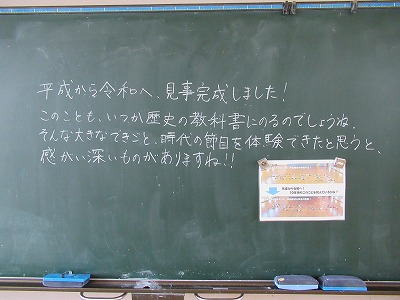 平成から令和へ、見事完成しました！
このことも、いつか歴史の教科書にのるのでしょうね。
そんな大きなできごと、時代の節目を体験できたと思うと、
感がい深いものがありますね！！